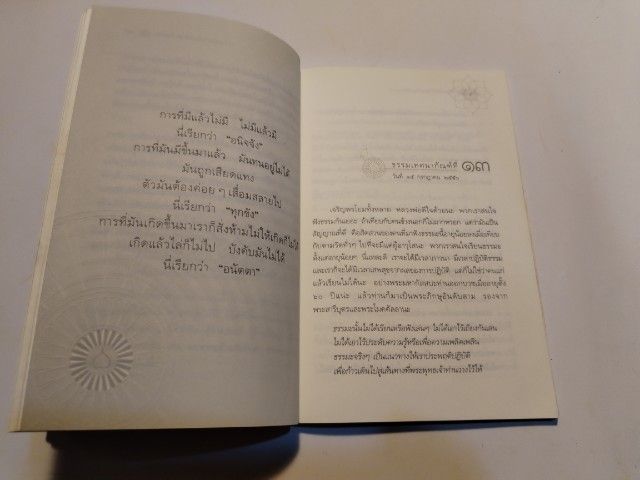 การที่มีแล้วไม่มี ไม่มีแล้วมี
นี่เรียกว่า "อนิจจัง"
การที่มันมีขึ้นมาแล้ว มันทนอยู่ไม่ได้
มันถูกเสียดแทง
ตัวมันต้องค่อย ๆ เสื่อมสลายไป
นี่เรียกว่า "ทุกขัง"
การที่มันเกิดขึ้นมาเราก็สั่งห้ามไม่ให้เกิดก็ไม่ได้
เกิดแล้วไล่ก็ไม่ไป บังคับมันไม่ได้
นี่เรียกว่า "อนัตตา"
ธรรมเทศนากัณฑ์ที่ ๑๓
วันที่ ๑๕ กรกฎาคม ๒๕๕๖
เจริญพรโยมทั้งหลาย หลวงพ่อดีใจด้วยนะ พวกเราสนใจ
ฟังธรรมกันเยอะ ถ้าเทียบกับคนข้างนอกก็ไม่มากหรอก แต่ว่ามันเป็น
สัญญาณที่ดี คือ
กับตามวัดทั่วๆ ไปที่จะมีแต่ผู้อาวุโสนะ พวกเราสนใจเรียนธรรมะ
ตั้งแต่อายุน้อยๆ นี่แหละดี เราจะได้มีเวลาภาวนา มีเวลาปฏิบัติธรรม
และเราก็จะได้มีเวลาเสพสุขจากผลของการปฏิบัติ แต่ก็ไม่ใช่ว่าคนแก่
แล้วเรียนไม่ได้นะ อย่างพระมหากัสสปะท่านออกบวชเมื่ออายุตั้ง
๘๐ ปีแน่ะ แล้วท่านก็มาเป็นพระภิกษุอันดับสาม รองจาก
พระสารีบุตรและพระโมคคัลลานะ
ธรรมะนั้นไม่ได้เรียนหรือฟังเล่นๆ ไม่ได้เอาไว้เถียงกันเล่น
ไม่ได้เอาไว้ประดับความรู้หรือเพื่อความเพลิดเพลิน
ธรรมะจริงๆ เป็นแนวทางให้เราประพฤติปฏิบัติ
เพื่อก้าวเดินไปสู่เส้นทางที่พระพุทธเจ้าท่านวางไว้ให้